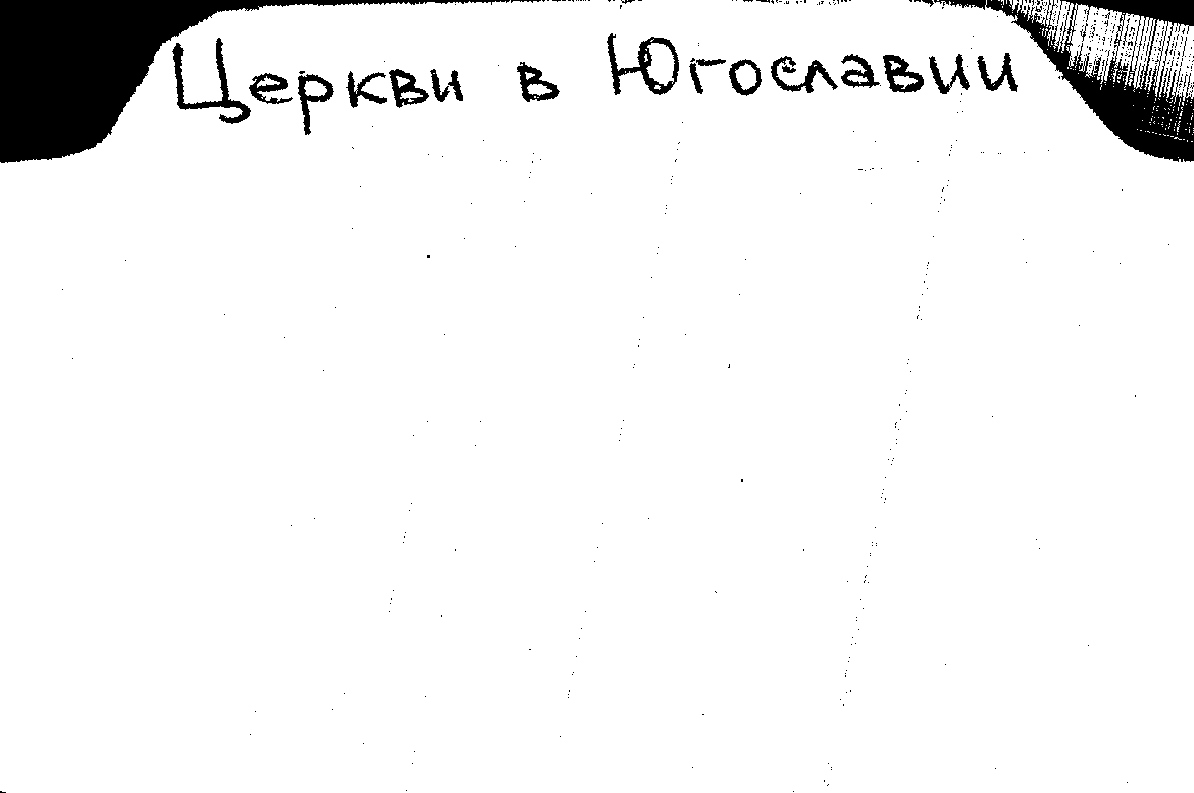 Церкви в Югославии